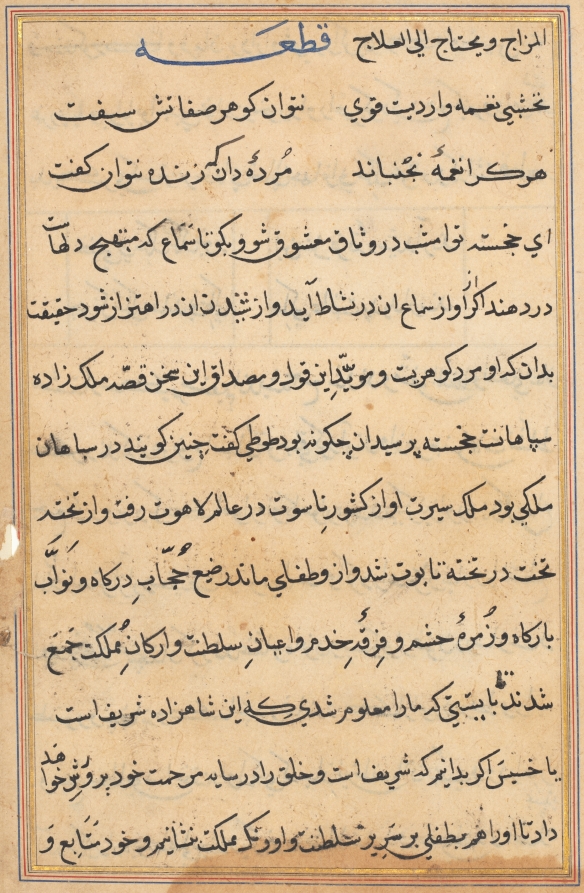 المزاج ويحتاج الى العلاج قطعه
نخشبي نغمه وارديت قوي نتوان كوهر صفاتش سفت
هركرا نغمهٔ نجنباند مُردهٔ دان كه زنده نتوان كفت
اي خجسته تو امشب در وثاق معشوق شو و بكو تا سماع كه منهج دلهاست
در دهند اكر او از سماع ان در نشاط آيد و از شنيدن ان در اهتزاز شود حقيقت
بدان كه او مرد كوهريت و مويّدِ اين قول و مصداق اين سخن قصّه ملك زاده
سپاهانت خجسته پرسيد ان چكونه بود طوطي كفت چنين كويند در سپاهان
ملكي بود ملك سيرت او از كشور ناسوت در عالم لاهوت رفت و از تخته
تخت در تخته تابوت شد و ازو طفلي ماند رضيع حُجّابِ دركاه و نوّاب
باركاه و زُمرهٔ حشم و فِرقهٔ خدم و اعيانِ سلطنت و اركانِ مملكت جَمع
شدند بايستي كه ما را معلوم شدي كِه اين شاهزاده شريف است
يا خسيسَ اكر بدانيم كه شريف است و خلق را در سايه مرحمت خود پروُرِش خواهد
داد تا او را هم بطفلي بر سَريرِ سلطنت و اورنك مملكت نشانيم و خود مُتَابِع وَ